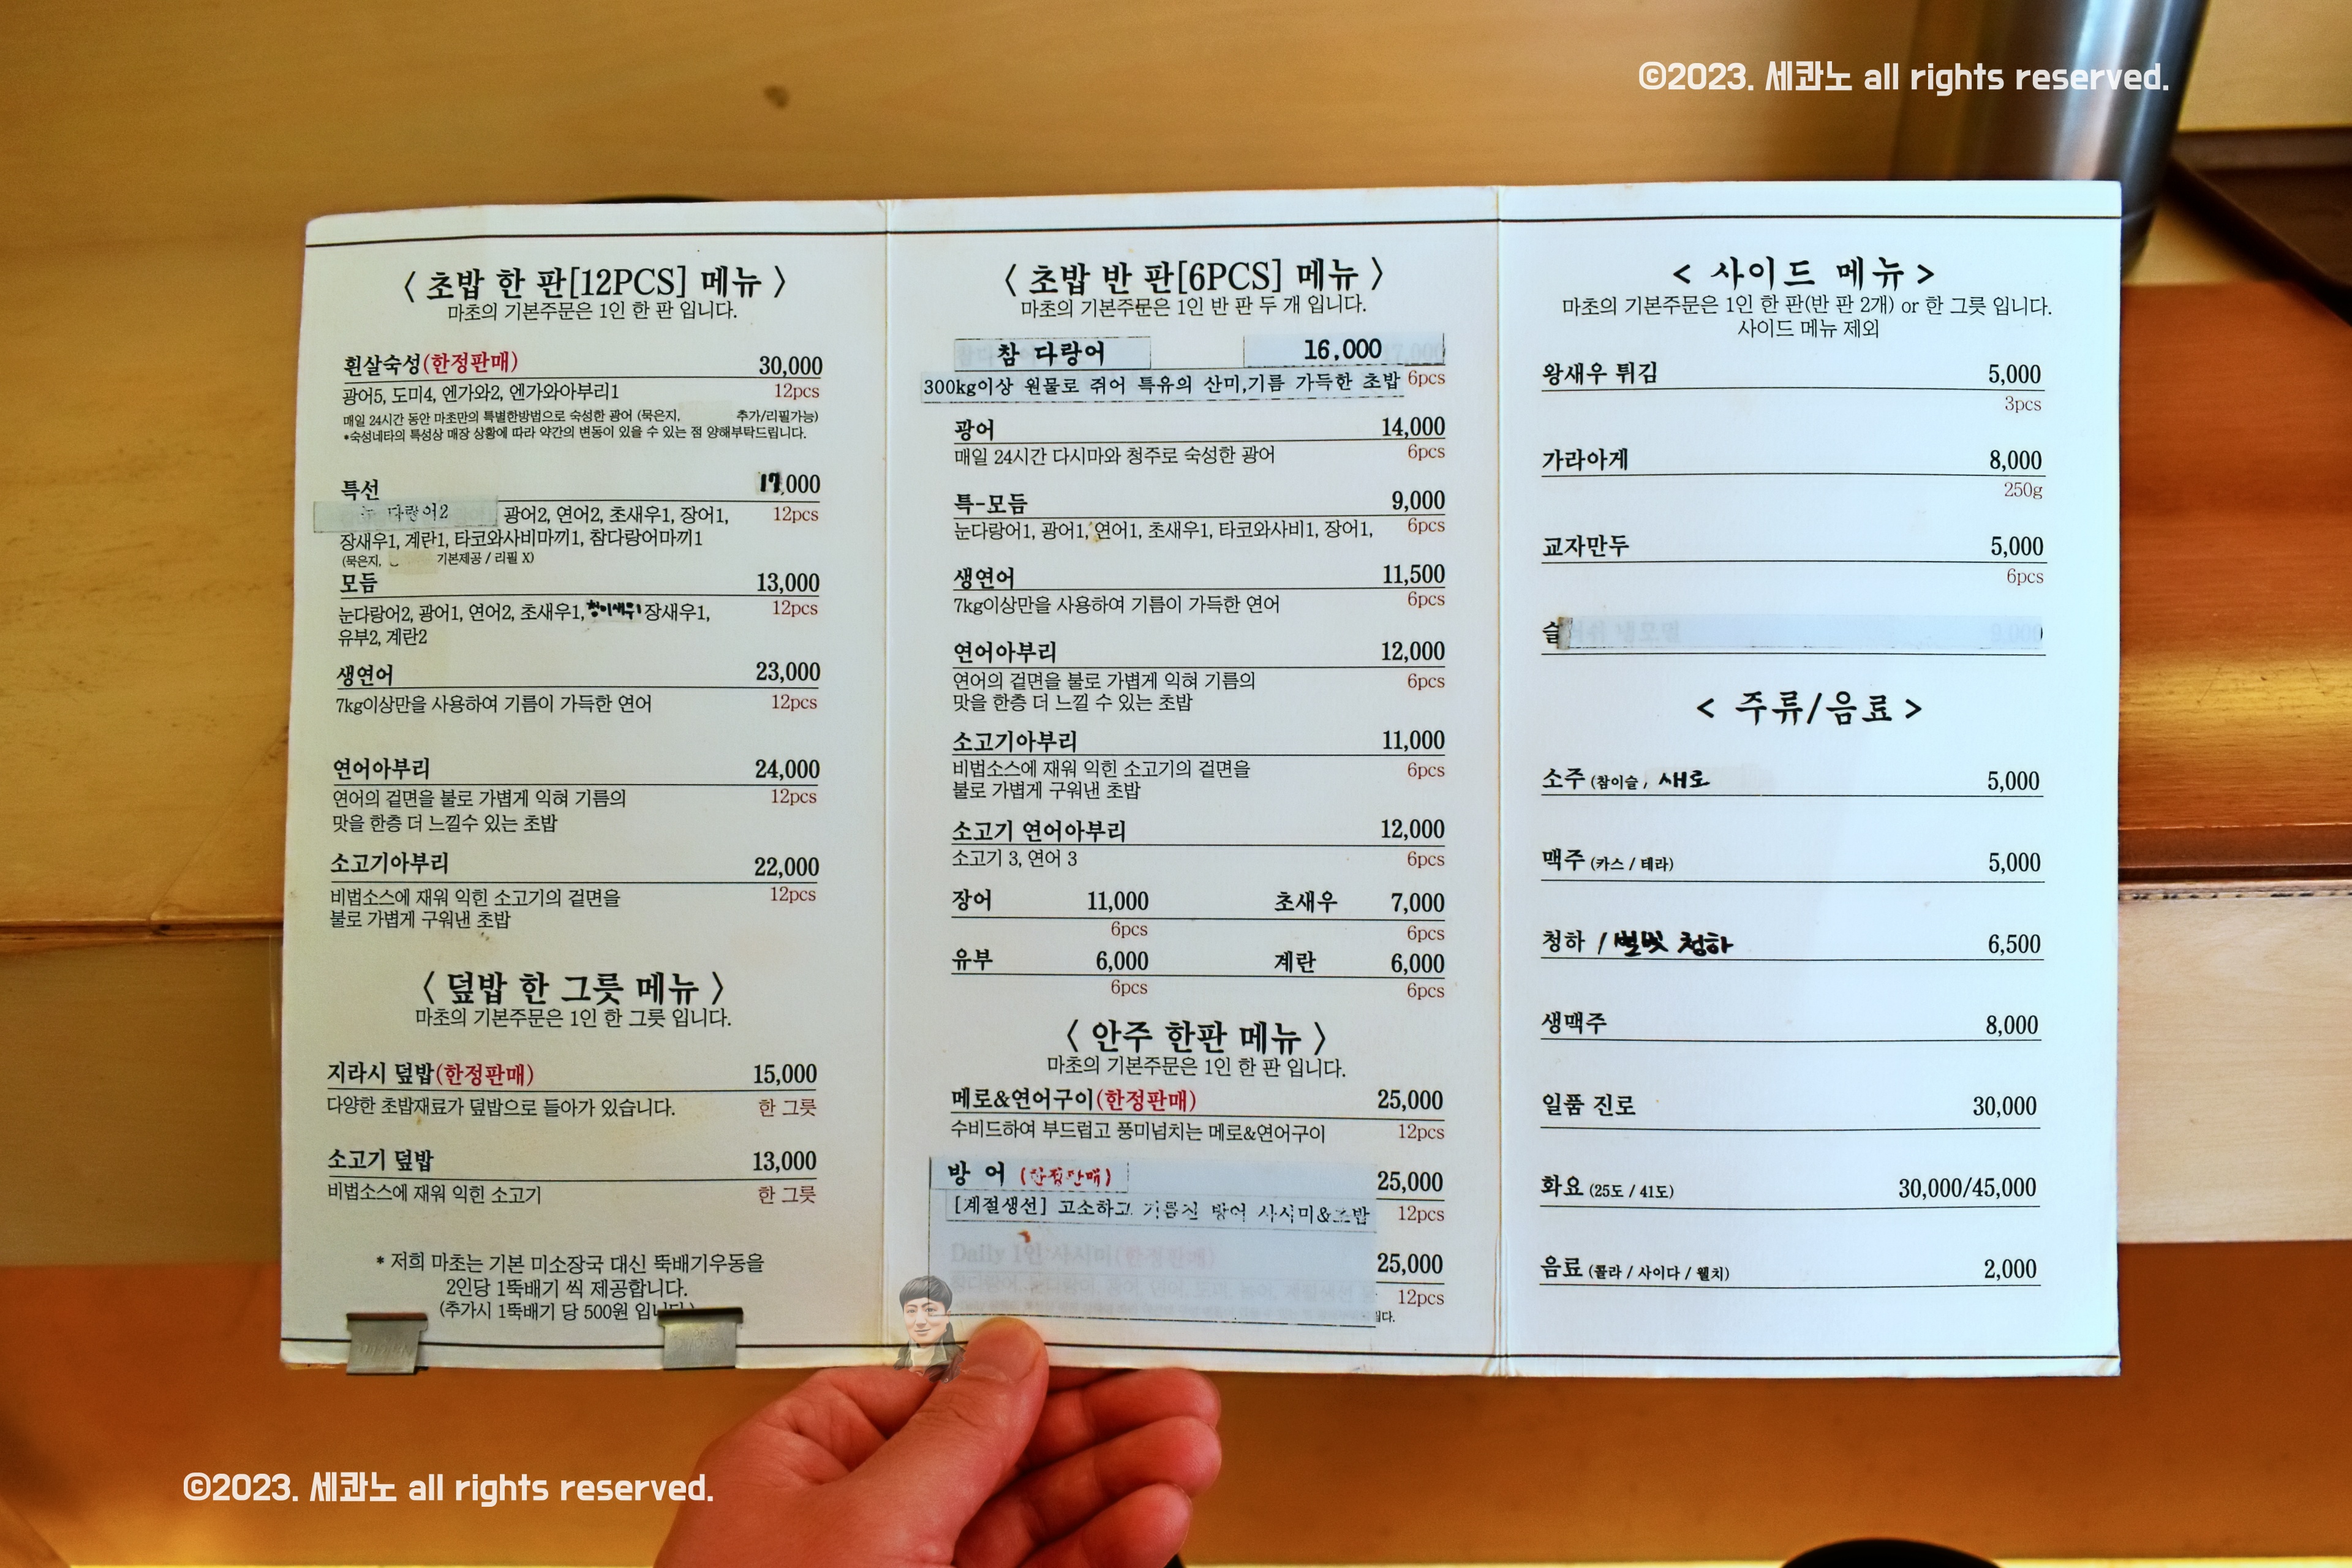 ©2023. 세콴노 all rights reserved.
〈 초밥 한 판[12PCS] 메뉴 〉
마초의 기본주문은 1인 한 판 입니다.
흰살숙성(한정판매) 30,000
광어5, 도미4, 엔가와2, 엔가와아부리1 12pcs
매일 24시간 동안 마초만의 특별한방법으로 숙성한 광어 (묵은지, 추가/리필가능)
*숙성네타의 특성상 매장 상황에 따라 약간의 변동이 있을 수 있는 점 양해부탁드립니다.
특선 17,000
눈 다랑어2 광어2, 연어2, 초새우1, 장어1, 12pcs
장새우1, 계란1, 타코와사비마끼1, 참다랑어마끼1
(묵은지, 기본제공 / 리필 X)
모듬 13,000
눈다랑어2, 광어1, 연어2, 초새우1, 장새우1, 12pcs
유부2, 계란2
생연어 23,000
7kg이상만을 사용하여 기름이 가득한 연어 12pcs
연어아부리 24,000
연어의 겉면을 불로 가볍게 익혀 기름의 12pcs
맛을 한층 더 느낄수 있는 초밥
소고기아부리 22,000
비법소스에 재워 익힌 소고기의 겉면을 12pcs
불로 가볍게 구워낸 초밥
〈 덮밥 한 그릇 메뉴 〉
마초의 기본주문은 1인 한 그릇 입니다.
지라시 덮밥(한정판매) 15,000
다양한 초밥재료가 덮밥으로 들아가 있습니다. 한 그릇
소고기 덮밥 13,000
비법소스에 재워 익힌 소고기 한 그릇
* 저희 마초는 기본 미소장국 대신 뚝배기우동을
2인당 1뚝배기 씩 제공합니다.
(추가시 1뚝배기 당 500원 입니다.)
〈 초밥 반 판[6PCS] 메뉴 〉
마초의 기본주문은 1인 반 판 두 개 입니다.
참 다랑어 16,000
300kg이상 원물로 쥐어 특유의 산미,기름 가득한 초밥 6pcs
광어 14,000
매일 24시간 다시마와 청주로 숙성한 광어 6pcs
특-모듬 9,000
눈다랑어1, 광어1, 연어1, 초새우1, 타코와사비1, 장어1, 6pcs
생연어 11,500
7kg이상만을 사용하여 기름이 가득한 연어 6pcs
연어아부리 12,000
연어의 겉면을 불로 가볍게 익혀 기름의 6pcs
맛을 한층 더 느낄 수 있는 초밥
소고기아부리 11,000
비법소스에 재워 익힌 소고기의 겉면을 6pcs
불로 가볍게 구워낸 초밥
소고기 연어아부리 12,000
소고기 3, 연어 3 6pcs
장어 11,000 초새우 7,000
6pcs 6pcs
유부 6,000 계란 6,000
6pcs 6pcs
〈 안주 한판 메뉴 〉
마초의 기본주문은 1인 한 판 입니다.
메로&연어구이(한정판매) 25,000
수비드하여 부드럽고 풍미넘치는 메로&연어구이 12pcs
방 어 (한정판매) 25,000
[계절생선] 고소하고 기름진 방어 사시미&초밥 12pcs
Daily 1인 사시미(한정판매) 25,000
12pcs
니다.
< 사이드 메뉴 >
마초의 기본주문은 1인 한 판(반 판 2개) or 한 그릇 입니다.
사이드 메뉴 제외
왕새우 튀김 5,000
3pcs
가라아게 8,000
250g
교자만두 5,000
6pcs
슬
< 주류/음료 >
소주 (참이슬 / 새로 5,000
맥주 (카스 / 테라) 5,000
청하 / 별빛 청하 6,500
생맥주 8,000
일품 진로 30,000
화요 (25도 / 41도) 30,000/45,000
음료 (콜라 / 사이다 / 웰치) 2,000
©2023. 세콴노 all rights reserved.